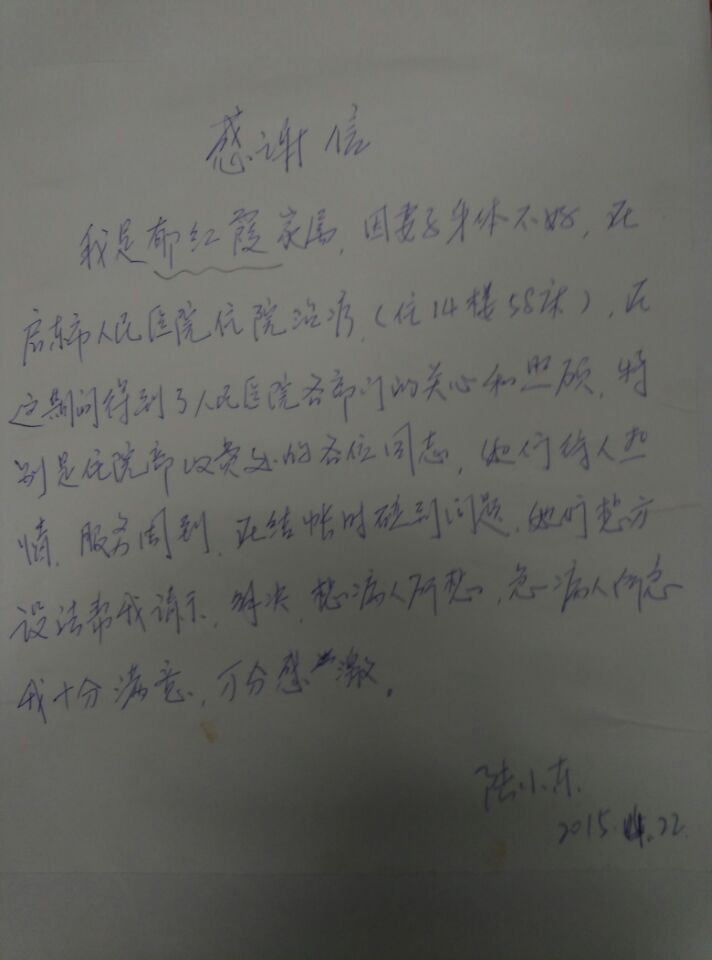 感谢信
我是郁红霞家属,因妻子身体不好,在
启东市人民医院住院治疗,(住14楼58床),在
这期间得到了人民医院各部门的关心和照顾,特
别是住院部收费处的各位同志,她们待人热
情,服务周到,在结帐时碰到问题,她们想方
设法帮我请示,解决,想病人所想,急病人所急
我十分满意,万分感激。
陆小东
2015. .22